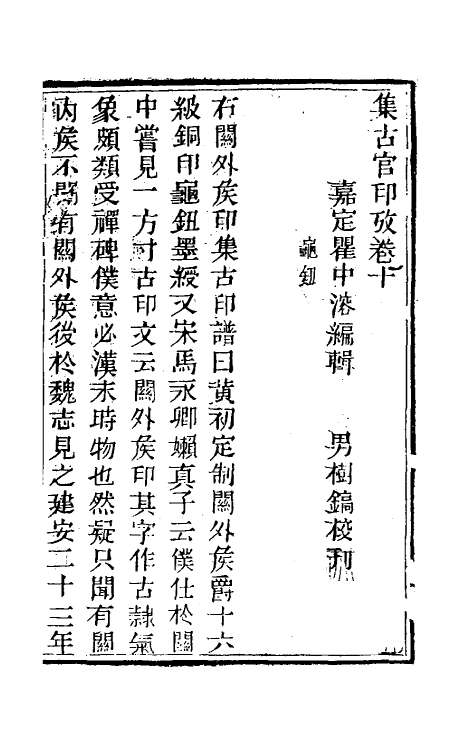 集古官印攷卷十
嘉定瞿中溶編輯　男樹鎬校刊
龜鈕
右關外矦印集古印譜曰黃初定制關外矦爵十六
級銅印龜鈕墨綬又宋馬永卿嬾真子云僕仕於關
中嘗見一方寸古印文云關外矦印其字作古隷氣
象頗類受禪碑僕意必漢末時物也然疑只聞有關
内矦不聞有關外矦後於魏志見之建安二十三年